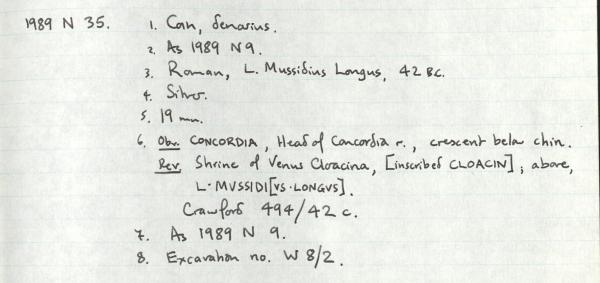 1989 N 35. 1. Coin, denarius.
2. As 1989 N 9.
3. Roman, L. Mussidius Longus, 42 BC.
4. Silver.
5. 19 mm.
6. Obv. CONCORDIA, Head of Concordia r., crescent below chin.
Rev Shrine of Venus Cloacina, [inscribed CLOACIN]; above,
L·MVSSIDI[VS·LONGVS].
Crawford 494/42 c.
7. As 1989 N 9.
8. Excavation no. W 8/2.